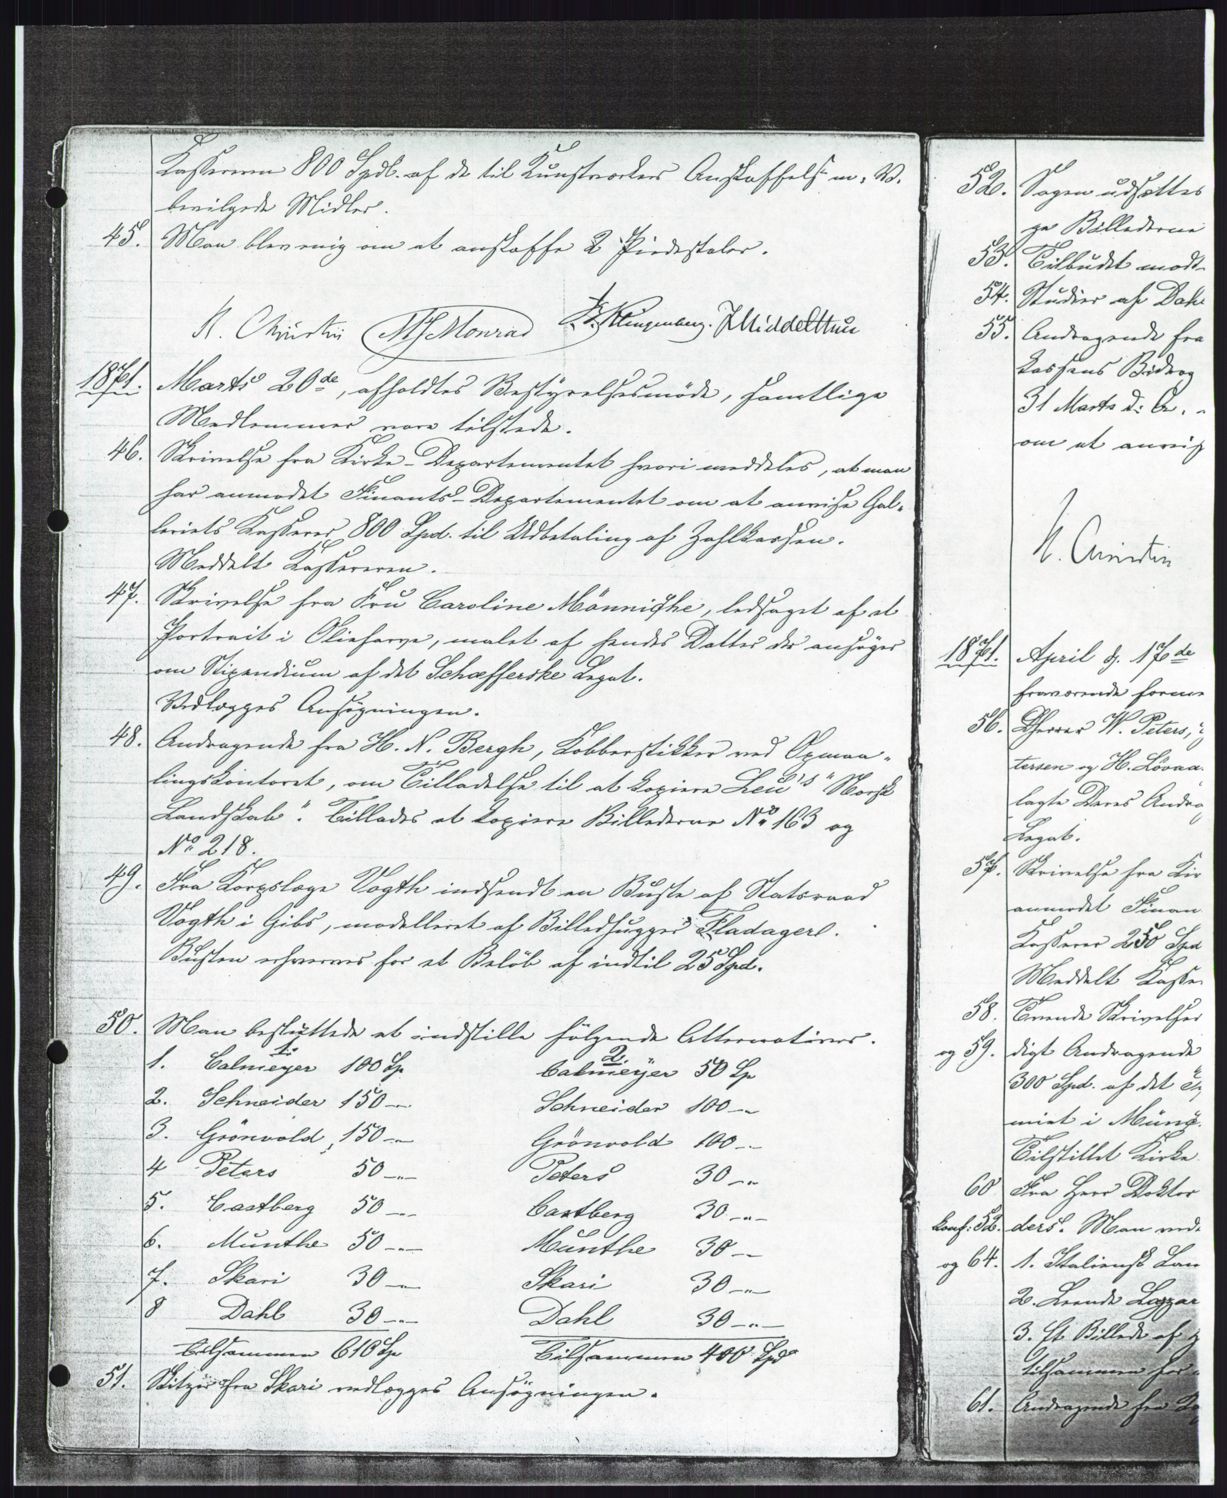 Kassereren 800 Spdl. af de til Kunstværkers Anskaffelse m. V.
bevilgede Midler.
45. Man blev enig om at anskaffe 2 Piedestaler.
H. Christin MJMonrad Klingenberg. JMiddelthun
1871. Marts 20de, afholdtes Bestyrelsesmöde, samtlige
Medlemmer vare tilstede.
46. Skrivelse fra Kirke-Departementet hvori meddeles, at man
har anmodet Finants-Departementet om at anvise Gal-
leriets Kasserer 800 Spd. til Udbetaling af Zahlkassen.
Meddelt Kassereren.
47. Skrivelse fra Fru Caroline Mönnighe, ledsaget af et
Portrait i Oliefarve, malet af hendes Datter der ansöger
om Stipendium af det Schæfferske Legat.
Vedlægges Ansögningen.
48. Andragende fra H. N. Bergh, Kobberstikker ved Opmaa-
lingskontoret, om Tilladelse til at kopiere Leu's "Norsk
Landskab". Tillades at kopiere Billederne No 163 og
No 218.
49. Fra Korpslæge Vogth indsendt en Buste af Statsraad
Vogth i Gibs, modelleret af Billedhugger Fladager.
Busten erhverves for et Beløb af indtil 25 Spd.
50. Man besluttede at indstille følgende Alternativer.
1. 2.
1. Calmeyer 100 Sp Calmeyer 50 Sp
2. Schneider 150 -"- Schneider 100 -"-
3. Grönvold, 150 -"- Grönvold 100 -"-
4 Peters 50 -"- Peters 30 -"-
5. Castberg 50 -"- Castberg 30 -"-
6. Munthe 50 -"- Munthe 30 -"-
7. Skari 30 -"- Skari 30 -"-
8 Dahl 30 -"- Dahl 30 -"-
Tilsammen 610 Sp Tilsammen 400 Spd
51. Skizze fra Skari vedlægges Ansögningen.
52. Sagen udsættes
ge Billederne
53. Tilbudt modt-
54. Studier af Dahl
55. Andragende fra
kassens Bidrag
31 Marts d: A.
om at anvis
H. Christin
1871. April d. 17de
fraværende forme
56. DHerrer W. Peters,
tersen og H. Lövaa
lagte Deres Andra
Legat.
57. Skrivelse fra Kir
anmodet Finan
Kasserer 250 Spd
Meddelt Kasse
58. Tvende Skrivelser
og 59. digt Andragende
300 Spd. af det
miet i Münc
Tilstillet Kirke
60 Fra Herr Doktor
Konf: 52. ders. Man ved
og 64. 1. Italiensk Lan
2. Leende Lazzar
3. Et Billede af
tilsammen for
61. Andragende fra